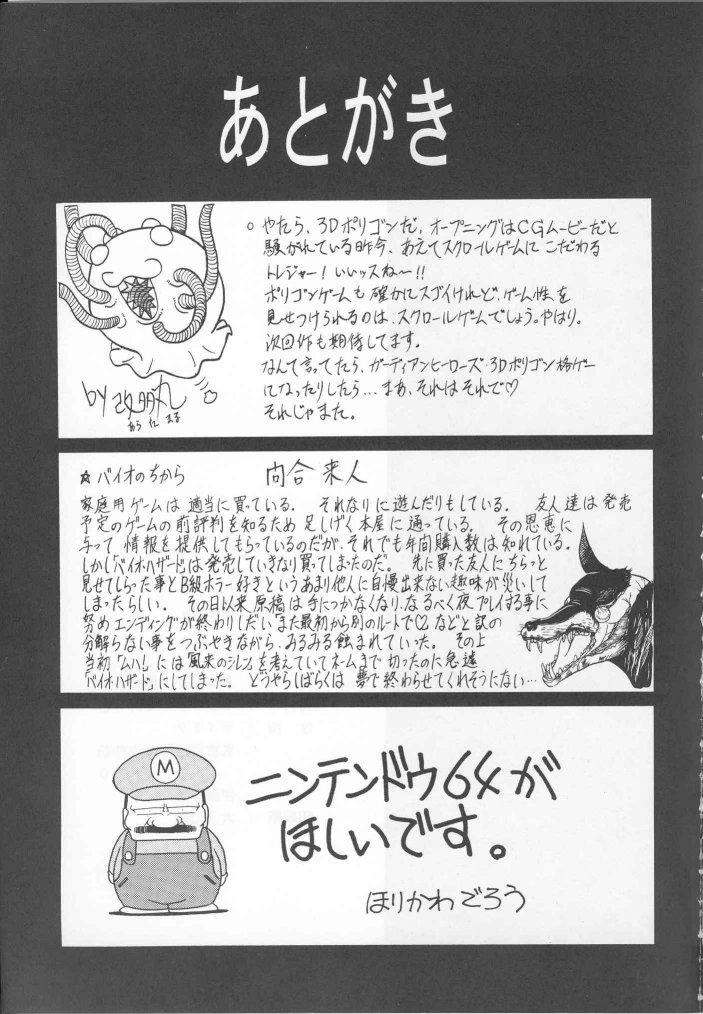 あとがき
○ やたら、3Dポリゴンだ、オープニングはCGムービーだと
騒がれている昨今、あえてスクロールゲームにこだわる
トレジャー！いいッスねー!!
ポリゴンゲームも確かにスゴイけれど、ゲーム性を
見せつけられるのは、スクロールゲームでしょう。やはり。
次回作も期待してます。
なんて言ってたら、ガーディアンヒーローズ・3Dポリゴン格ゲー
になったりしたら…まあ、それはそれで♡
それじゃまた。
by
☆ バイオのちから 向合来人
家庭用ゲームは適当に買っている。 それなりに遊んだりもしている。 友人達は発売
予定のゲームの前評判を知るため足しげく本屋に通っている。 その恩恵に
与って情報を提供してもらっているのだが、それでも年間購入数は知れている。
しかし「バイオハザード」は発売していきなり買ってしまったのだ。 先に買った友人にちらっと
見せてしらった事とB級ホラー好きというあまり他人に自慢出来ない趣味が災いして
しまったらしい。 その日以来原稿は手につかなくなり、なるべく夜プレイする事に
努めエンディングが終わりしだいまた最初から別のルートでC2などと訳の
分解らない事をつぶやきながら、みるみる蝕まれていった。 その上
当初「ムハ!」には「風来のシレン」を考えていてネームまで切ったのに急遽
「バイオハザード」にしてしまった。 どうやらしばらくは夢で終わらせてくれそうにない…
M
ニンテンドウ64が
ほしいです。
ほりかわごろう